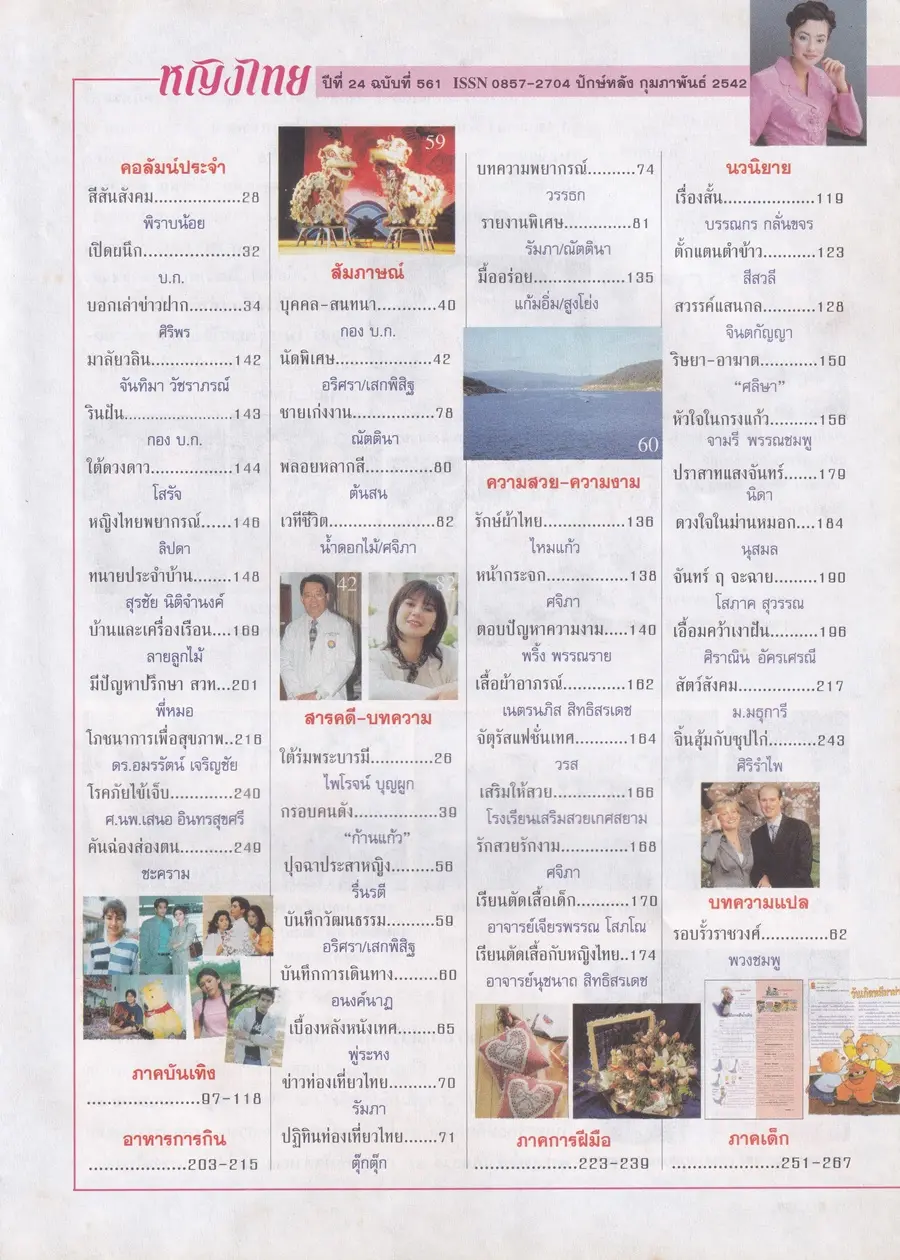 หญิงไทย
ปีที่ 24 ฉบับที่ 561 ISSN 0857-2704 ปักษ์หลัง กุมภาพันธ์ 2542
คอลัมน์ประจำ
สีสันสังคม..................28
พิราบน้อย
เปิดผนึก.....................32
บ.ก.
บอกเล่าข่าวฝาก...........34
ศิริพร
มาลัยวลิน..................142
จันทิมา วัชราภรณ์
รินฝัน.......................143
กอง บ.ก.
ใต้ดวงดาว..................144
โสรัจ
หญิงไทยพยากรณ์......146
ลิปดา
ทนายประจำบ้าน........148
สุรชัย นิติจำนงค์
บ้านและเครื่องเรือน....169
ลายลูกไม้
มีปัญหาปรึกษา สวท...201
พี่หมอ
โภชนาการเพื่อสุขภาพ..216
ดร.อมรรัตน์ เจริญชัย
โรคภัยไข้เจ็บ..............240
ศ.นพ.เสนอ อินทรสุขศรี
คันฉ่องส่องตน............249
ชะคราม
ภาคบันเทิง
.......................97-118
อาหารการกิน
....................203-215
59
สัมภาษณ์
บุคคล-สนทนา............40
กอง บ.ก.
นัดพิเศษ....................42
อริศรา/เสกพิสิฐ
ชายเก่งงาน.................78
ณัตตินา
พลอยหลากสี..............80
ต้นสน
เวทีชีวิต......................82
น้ำดอกไม้/ศจิภา
42
82
สารคดี-บทความ
ใต้ร่มพระบารมี.............26
ไพโรจน์ บุญผูก
กรอบคนดัง.................39
“ก้านแก้ว”
ปุจฉาประสาหญิง.........56
รื่นรตี
บันทึกวัฒนธรรม..........59
อริศรา/เสกพิสิฐ
บันทึกการเดินทาง........60
อนงค์นาฏ
เบื้องหลังหนังเทศ........65
พู่ระหง
ข่าวท่องเที่ยวไทย..........70
รัมภา
ปฏิทินท่องเที่ยวไทย.......71
ตุ๊กตุ๊ก
บทความพยากรณ์..........74
วรรธก
รายงานพิเศษ..............81
รัมภา/ณัตตินา
มื้ออร่อย...................135
แก้มอิ่ม/สูงโย่ง
60
ความสวย-ความงาม
รักษ์ผ้าไทย.................136
ไหมแก้ว
หน้ากระจก.................138
ศจิภา
ตอบปัญหาความงาม.....140
พริ้ง พรรณราย
เสื้อผ้าอาภรณ์.............162
เนตรนภิส สิทธิสรเดช
จัตุรัสแฟชั่นเทศ...........164
วรส
เสริมให้สวย................166
โรงเรียนเสริมสวยเกศสยาม
รักสวยรักงาม..............168
ศจิภา
เรียนตัดเสื้อเด็ก...........170
อาจารย์เจียรพรรณ โสภโณ
เรียนตัดเสื้อกับหญิงไทย..174
อาจารย์นุชนาถ สิทธิสรเดช
ภาคการฝีมือ
.....................223-239
นวนิยาย
เรื่องสั้น...................119
บรรณกร กลั่นขจร
ตั๊กแตนตำข้าว............123
สีสวลี
สวรรค์แสนกล............128
จินตกัญญา
ริษยา-อาฆาต..............150
“ศลิษา”
หัวใจในกรงแก้ว..........156
จามรี พรรณชมพู
ปราสาทแสงจันทร์.......179
นิดา
ดวงใจในม่านหมอก....184
นุสมล
จันทร์ ฤ จะฉาย...........190
โสภาค สุวรรณ
เอื้อมคว้าเงาฝัน...........196
ศิราณิน อัครเศรณี
สัตว์สังคม..................217
ม.มธุการี
จิ้นฮุ้มกับซุปไก่...........243
ศิริรำไพ
บทความแปล
รอบรั้วราชวงศ์..............62
พวงชมพู
ภาคเด็ก
......................251-267